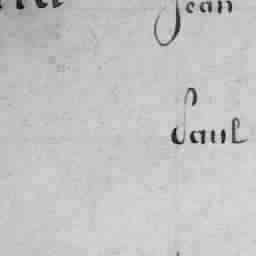 Jean
Saul